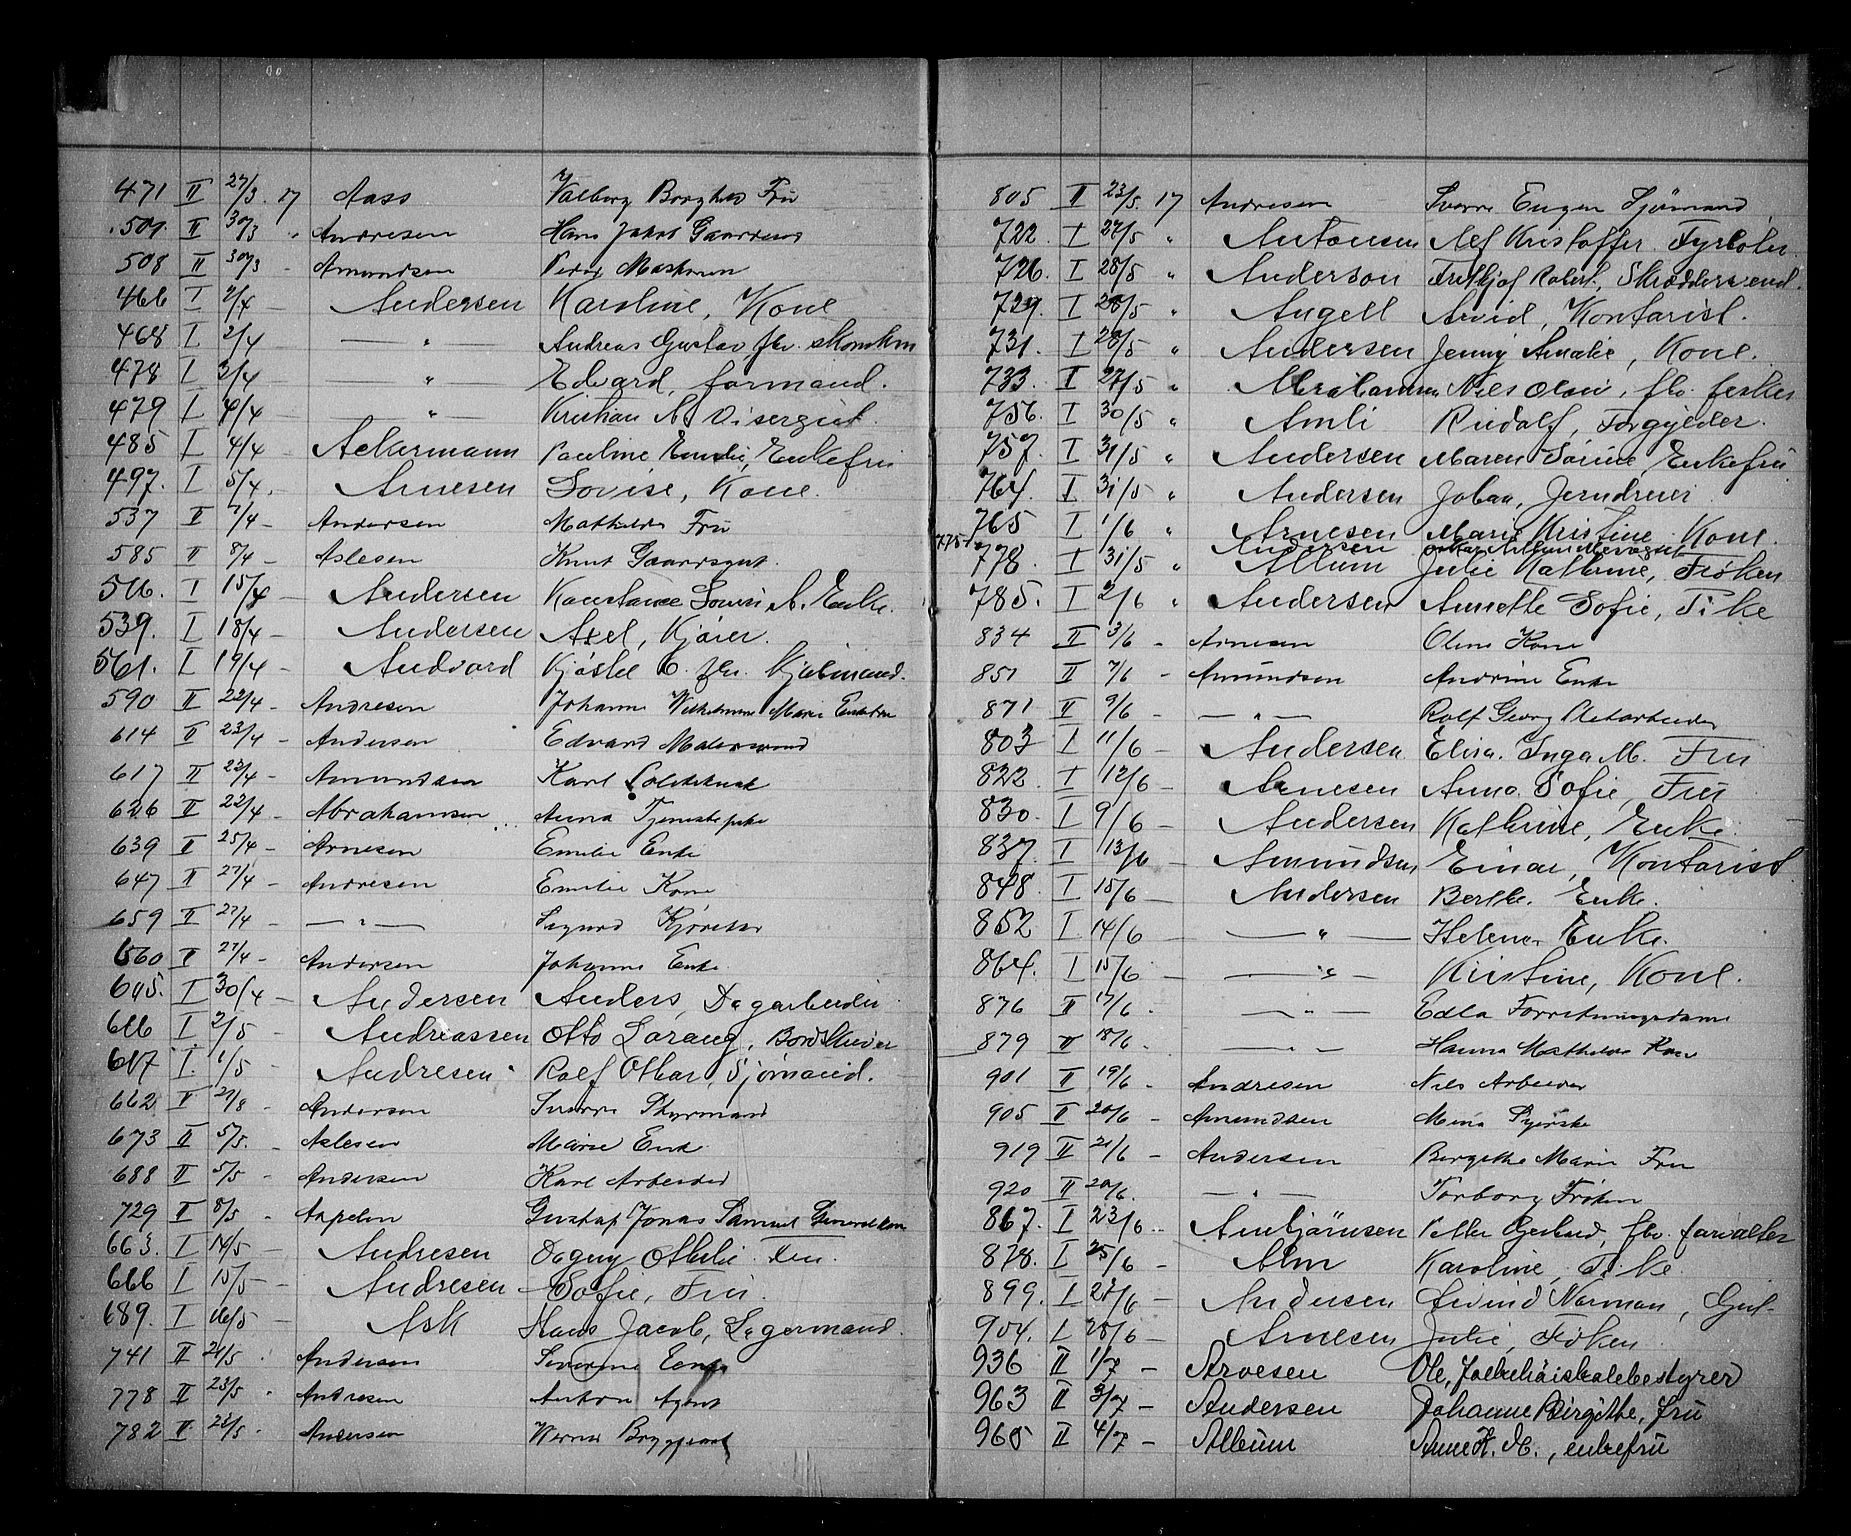 471 II 27/3. 17 Aass Valborg Borghild Fru
509. II 30/3 " Andresen Hans Jakob Gaardbrud
508 II 30/3 - Amundsen Peder Maskinm
466 I 2/4 - Andersen Karoline, Kone
468 I. 2/4 — " — Andreas Gustav fhv. skomkm
478 I. 3/4 — " — Edvard, formand.
479 I. 4/4 — " — Kristian A. Visergut.
485 I 4/4 - Ackermann Pauline Emilie, Enkefru
497. I 5/4. Arnesen Lovise, Kone.
537 II 7/4 - Andersen Mathilde Fru
585 II 8/4 - Aslesen Knut Gaardsgut.
516. I 15/4 - Andersen Konstance Lovise A. Enke.
539. I 18/4 - Andersen Axel, Kjører.
561. I. 19/4 - Andvord Kjøstel C. fhv. Kjøbmand.
590 II 22/4 - Andresen Johanne Wilhelmine Marie Enkefru
614 II 23/4 - Andersen Edvard Malersvend
617 II 23/4 - Amundsen Karl
626 II 22/4 - Abrahamsen Anna Tjenestepike
639 II 25/4 - Arnesen Emilie Enke
647 II 27/4 - Andresen Emilie Kone
659 II 27/4 - — " — Sigurd Kjøretør
660 II 27/4 - Andersen Johanne Enke
605. I 30/4 - Andersen Anders, Dagarbeider
616 I 2/5 - Andreassen Otto Lorang, Bordskriver
617 I. 1/5 - Andresen Rolf Othar, Sjømand.
662 II 27/8 - Andersen Sverre Styrmand
673 II 5/5. - Aslesen Marie Enke
688 II 5/5 - Andersen Karl Arbeider
729 II 8/5 - Aspelin Gustaf Jonas Samuel Generalkon
663. I 14/5 - Andresen Dagny Othilie Fru.
666 I 15/5 - Andresen Sofie, Fru.
689. I 16/5 - Ask Hans Jacob, Lagermand.
741 II 21/5 Andersen Severine Enke
778 II 23/5 " Andresen Anton Agent
782 II 23/5 . Andersen Werner Bryggearb
805 II 23/5. 17 Andresen Sverre Eugen Sjømand
722. I 27/5 " Antonsen Alf Kristoffer Fyrbøter.
726. I 28/5 " Anderson Frithjof Robert, Skræddersvend.
729. I 28/5 " Angell Arvid, Kontorist.
731. I 28/5 " Andersen Jenny Amalie, Kone.
733. I 27/5 " Abrahamsen Nils Olai, fhv. fisker
756. I 30/5 " Amli Rudolf, Forgylder.
757. I 31/5 " Andersen Maren Sørine, Enkefru
764. I 31/5 " Andersen Johan, Jerndreier
765 I 1/6 " Arnesen Marie Kristine Kone.
775 Andersen
778. I 31/5 " Album Julie Kathrine, Frøken
785. I 2/6 " Andersen Annette Sofie, Pike
834 II 3/6 - Arnesen Oline Kone
851 II 7/6 - Amundsen Andrine Enke
871 II 9/6 - — " — Rolf Georg Platearbeider
803 I 11/6 - Andersen Elisa. Inga M. Fru
822. I 12/6 - Arnesen Anna Sofie, Fru
830. I 9/6 - Andersen Kathrine, Enke.
837. I 13/6 - Amundsen Einar, Kontorist
848. I 15/6 - Andersen Berthe. Enke.
852 I. 14/6 — " — Helene Enke.
864. I 15/6 - — " — Kristine, Kone.
876 II 17/6. — " — Edla Forretningsdame
879 II 18/6. — " — Hanna Mathilde Kone
901 II 19/6 - Andresen Nils Arbeider
905 II 20/6 - Amundsen Mina Syerske
919 II 21/6 - Andersen Bergithe Marie Fru
920 II 20/6. — " — Torborg Frøken
867. I 23/6 - Anbjørnsen Petter Gerhard, fhv. forvalter
878. I 25/6 - Alm Karoline, Pike.
899. I 27/6 - Andersen Eivind Norman, Gut-
904. I. 28/6 - Arnesen Julie, Frøken
936 II 1/7 - Arvesen Ole, Folkehøiskolebestyrer
963 II 3/7 - Andersen Johanne Birgithe, fru
965 II 4/7 - Album Anne K. M., enkefru